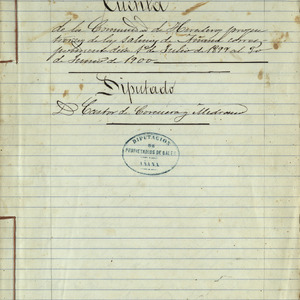 Cuenta
de la Comunidad de Herederos propie
tarios de las Salinas de Añana corres
pondiente desde 1º de Julio de 1899 al 30
de Junio de 1900
Diputado
D. Castor de
DIPUTACION
DE
PROPIETARIOS DE SALES
AÑANA